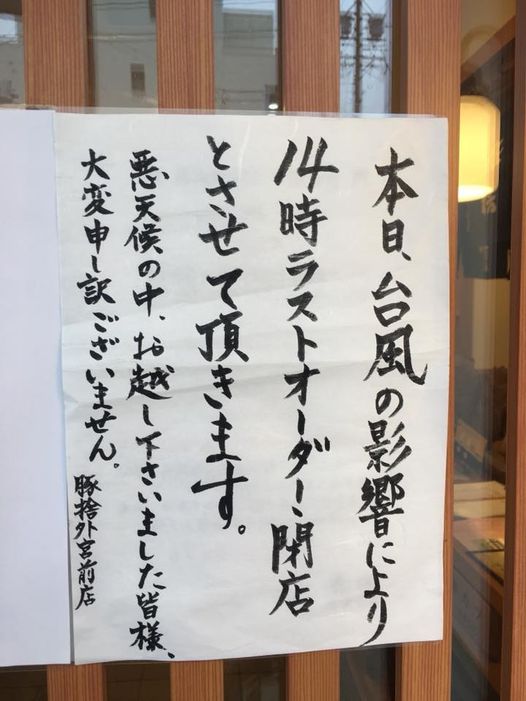 本日、台風の影響により
14時ラストオーダー、閉店
とさせて頂きます。
悪天候の中、お越し下さいました皆様、
大変申し訳ございません。
豚捨外宮前店